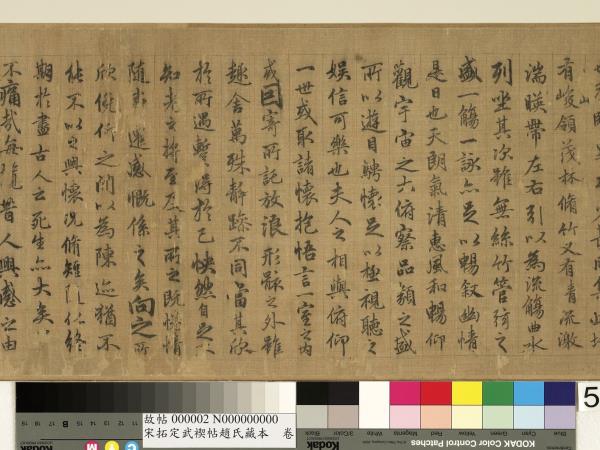 有峻領茂林脩竹又有清流激
湍暎帶左右引以為流觴曲水
列坐其次雖無絲竹管弦之
盛一觴一詠亦足以暢敘幽情
是日也天朗氣清惠風和暢仰
觀宇宙之大俯察品類之盛
所以遊目騁懷足以極視聽之
娛信可樂也夫人之相與俯仰
一世或取諸懷抱悟言一室之內
或因寄所託放浪形骸之外雖
趣舍萬殊靜躁不同當其欣
於所遇蹔得於己怏然自足不
知老之將至及其所之既惓情
隨事遷感慨係之矣向之所
欣俛仰之間以為陳迹猶不
能不以之興懷況脩短隨化終
期於盡古人云死生亦大矣
不痛哉每攬昔人興感之由
故帖 000002 N000000000
宋拓定武禊帖趙氏藏本 卷
KODAK Color Control Patches
Blue
Cyan
Green
Yellow
Red
Magenta
White
3/Color
Black
Kodak
B
M
C
5